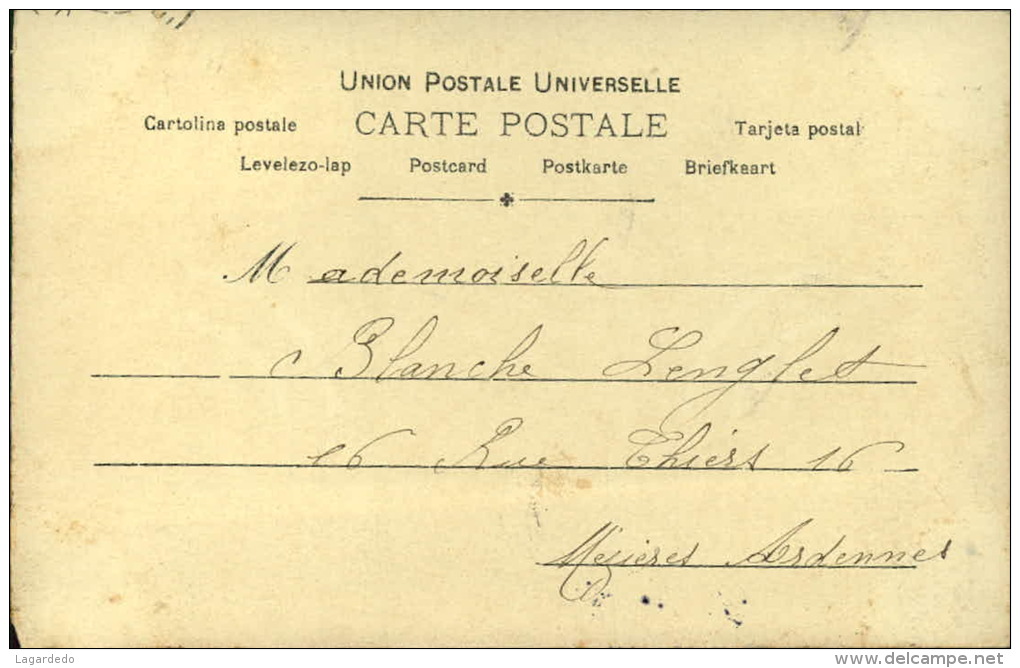 UNION POSTALE UNIVERSELLE
Cartolina postale CARTE POSTALE Tarjeta postal
Levelezo-lap Postcard Postkarte Briefkaart
Mademoiselle
Blanche Lenglet
16 Rue Thiers 16
Mezieres Ardennes
Lagardedo
www.delcampe.net